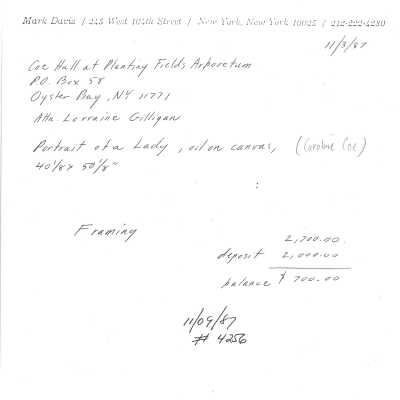 Mark Davis / 245 West 104th Street / New York, New York 10025 / 212-222-4280
11/3/87
Coe Hall at Planting Fields Arboretum
P.O. Box 58
Oyster Bay, NY 11771
Attn. Lorraine Gilligan
Portrait of a Lady, oil on canvas, (Caroline Coe)
40 1/8 x 50 1/8"
:
Framing
2,700.00
deposit 2,000.00
balance $ 700.00
11/09/87
# 4256